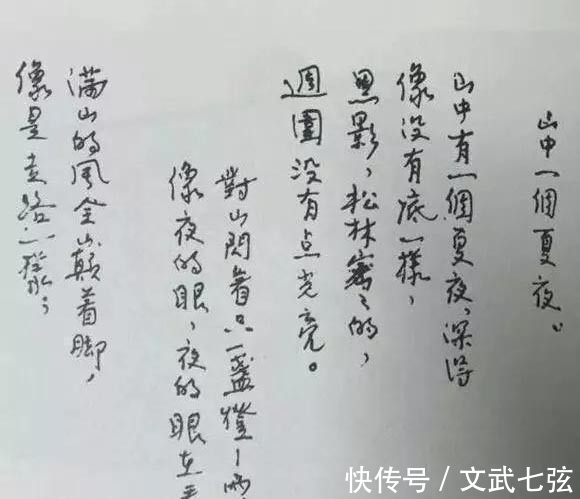 山中一個夏夜。
山中有一個夏夜，深得
像沒有底一樣，
黑影，松林密密的，
週圍没有点光亮。
對山閃着只一盞燈—兩
像夜的眼，夜的眼在看
满山的風全蹑着脚，
像是走路一樣，
快传号 / 文武七弦